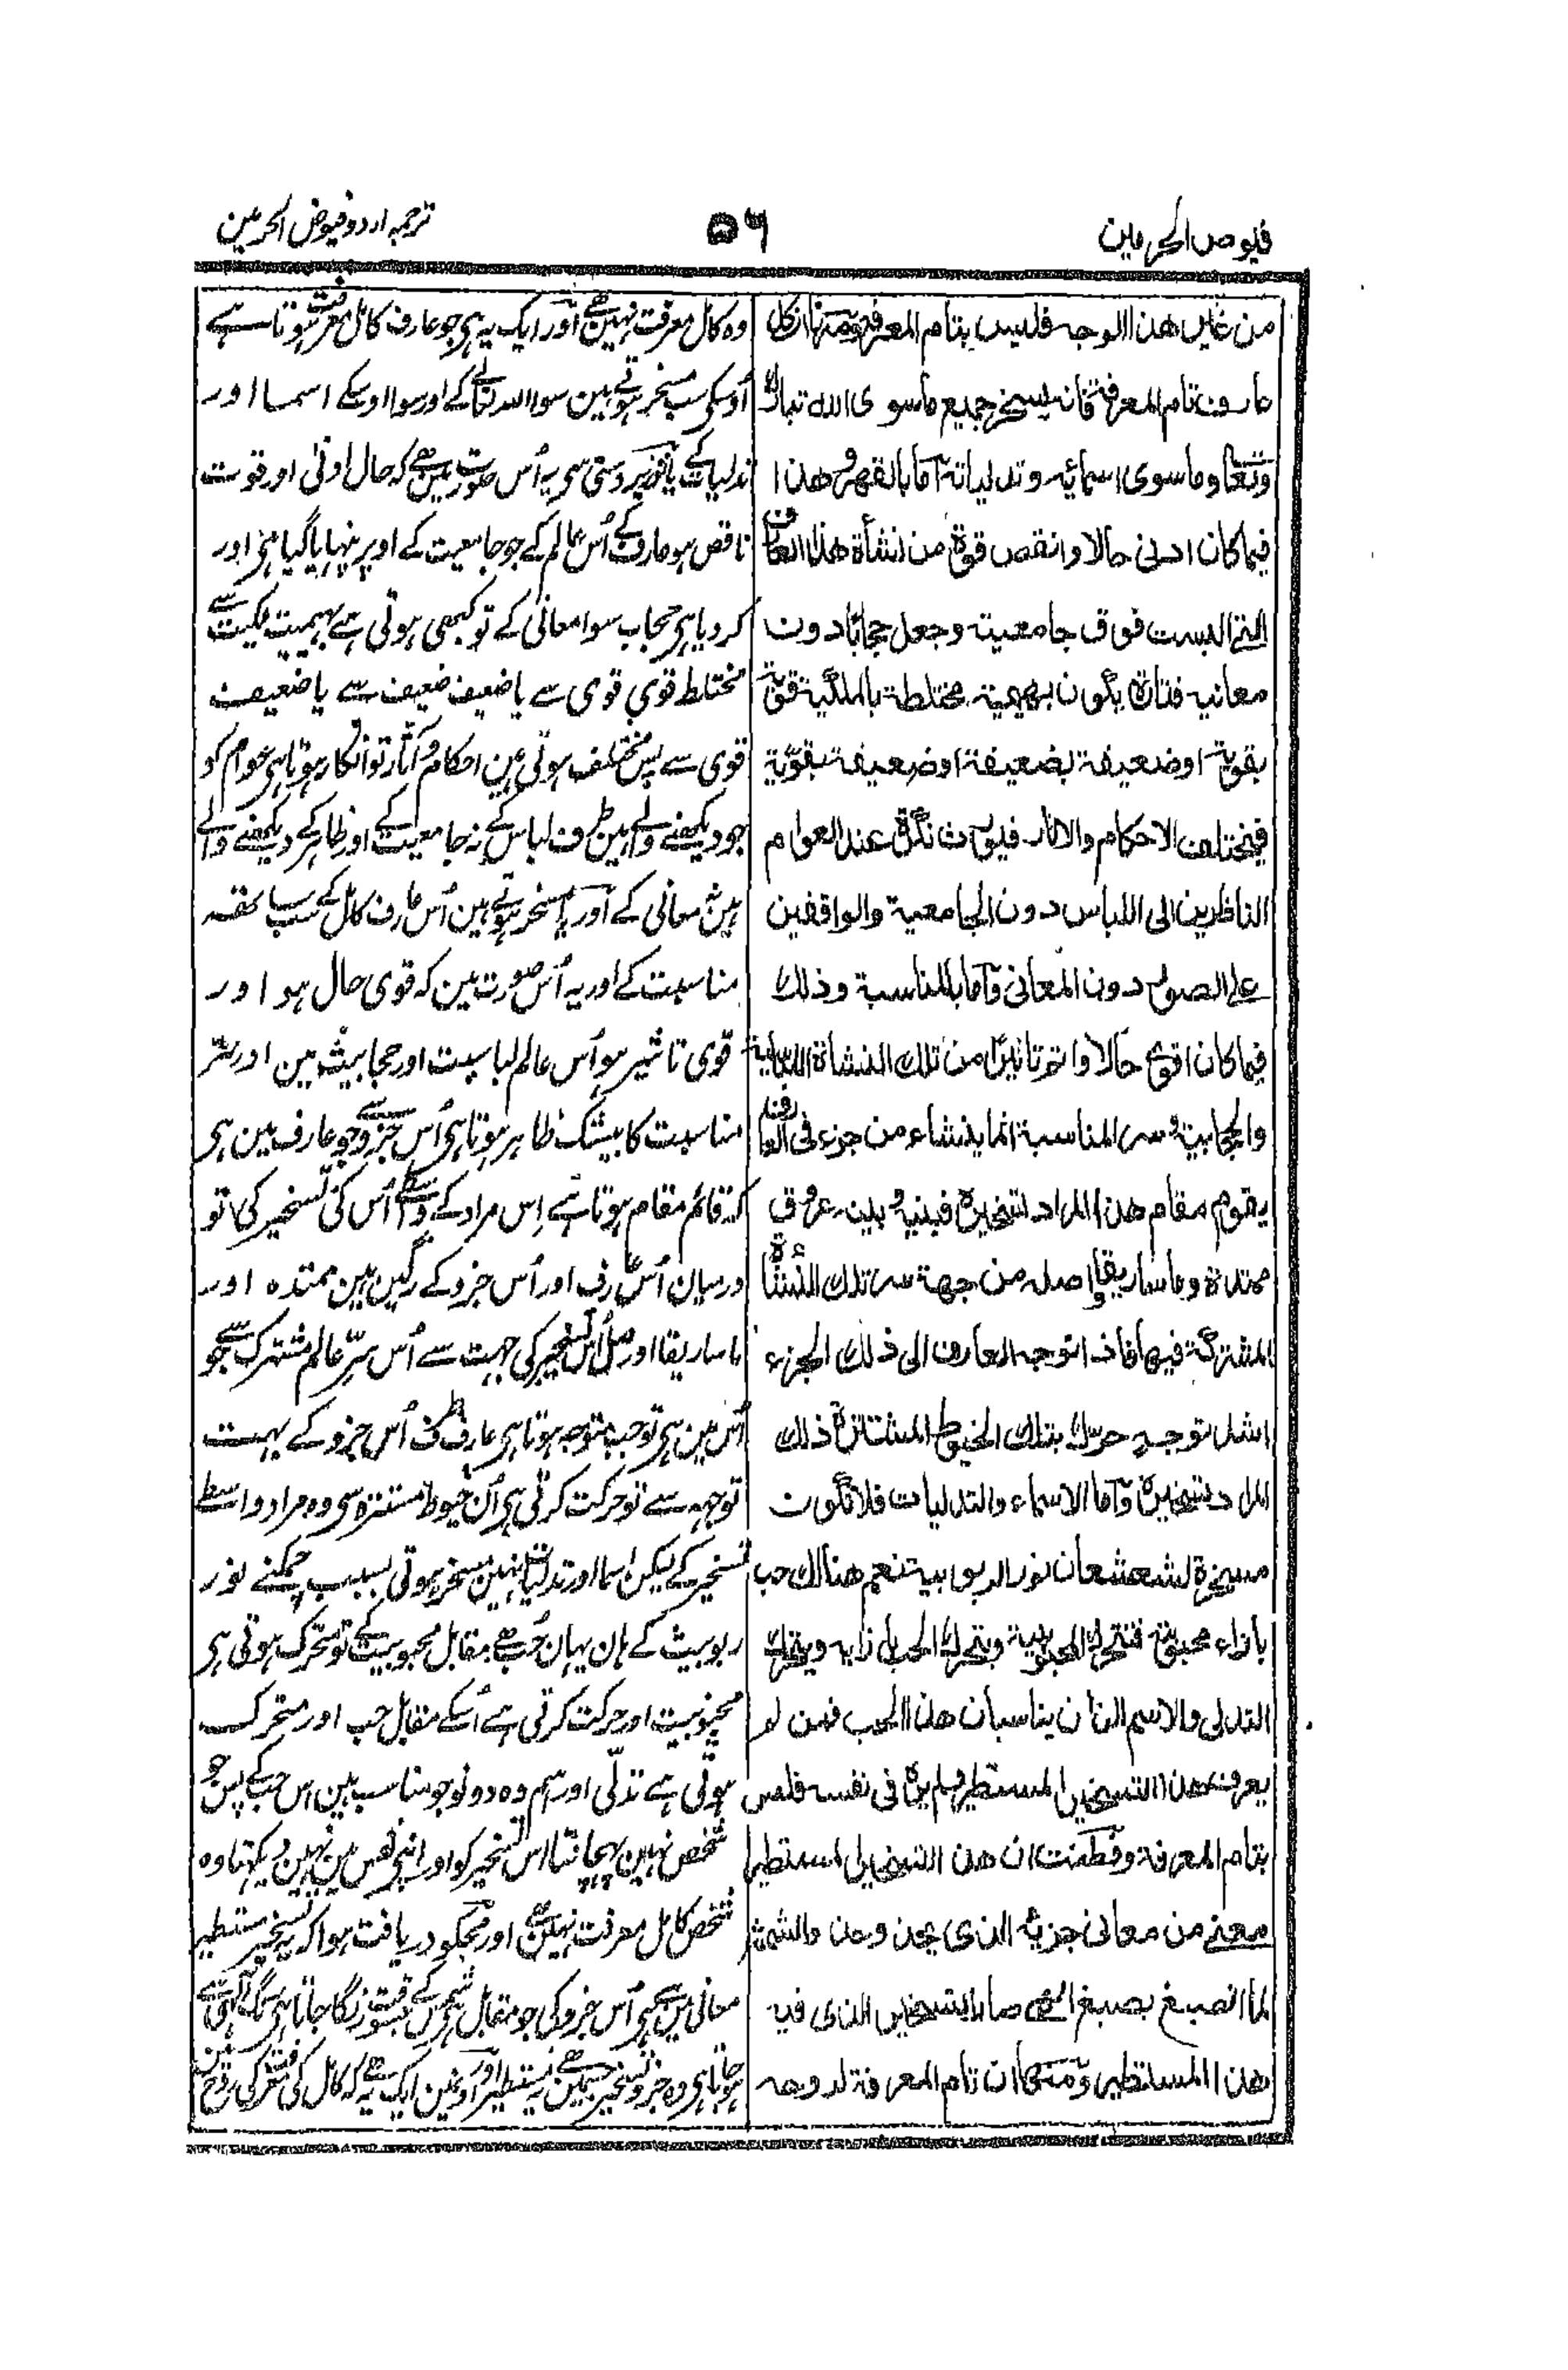 فیوض الحرمین
۵۶
ترجمہ اردو فیوض الحرمین
من غیر هذا الوجه فلیس بتام المعرفة ومنها ان كل
عارف تام المعرفة فانه یسخر جمیع ماسوی الله تبارك
وتعا وماسوی اسمائیه وتدلیاته اما بالقهر وهذا
فیما كان ادنی حالا وانقص قوة من نشأة هذا العارف
التی البست فوق جامعیته وجعل حجابا دون
معانیه فتارة یكون بهیمیة مختلطة بالملكیة قویة
بقویة او ضعیفة بضعیفة او ضعیفة بقویة
فیختلف الاحكام والاثار فیورث نكرة عند العوام
الناظرین الی اللباس دون الجامعیة والواقفین
علی الصور دون المعانی واما بالمناسبة وذلك
فیما كان اقوی حالا واتم تاثیرا من تلك النشاة اللباسیة
والحجابیة وسر المناسبة انما ینشاء من جزء فی العارف
یقوم مقام هذا المراد تسخیره فبینه وبین عروق
ممتدة وماساریقا واصله من جهة سر تلك النشأة
المشتركة فیها فاذا توجه العارف الی ذلك الجزء
اشد توجه حرك بتلك الخیوط المستترة ذلك
المراد تسخیره واما الاسماء والتدلیات فلا تكون
مسخرة لشعشعان نور الربوبیة نعم هنالك حب
بازاء محبوبیته فتتحرك المحبوبیة وبتحرك الحب بازایه ویتحرك
التدلی والاسم الذان یناسبان هذا الحب فمن لم
یعرف هذا التسخیر المستطیر ولم یره فی نفسه فلیس
بتام المعرفة وفطنت ان هذا التسخیر المستطیر
معنی من معانی جزئه الذی یحذو حذو الشمس
لما انصبغ بصبغ الهی صار التسخیر الذی فیه
هذا المستطیر ومنها ان تام المعرفة لروحه
وہ کامل معرفت نہین ہے اور ایک یہ ہی جو عارف کامل معرفت ہوتا ہے
اُوسکی سب مسخر ہوتے ہین سوا اللہ تعالے کے اور سوا اوسکے اسما اور
تدلیات کے یا تو زبردستی سی یہ اُس صورت مین ہے کہ حال ادنی اور قوت
ناقص ہو عارف کے اُس عالم کے جو جامعیت کے اوپر پنہایا گیا ہی اور
کردیا ہی حجاب سوا معانی کے تو کبھی ہوتی ہے بہیمیت ملکیت سے
مختلط قوی قوی سے یا ضعیف ضعیف سے یا ضعیف
قوی سے پس مختلف ہوتی ہین احکام و آثار تو انکار ہوتا ہی عوام کو
جو دیکھنے والے ہین طرف لباس کے نہ جامعیت کے اور ظاہر کے دیکھنے والے
ہین نہ معانی کے اور یا مسخر ہوتے ہین اُس عارف کامل کے سب ساتھ
مناسبت کے اور یہ اُس صورت مین کہ قوی حال ہو اور
قوی تاثیر ہو اُس عالم لباسیت اور حجابیت مین اور سر
مناسبت کا بیشک ظاہر ہوتا ہی اُس جزو سے جو عارف مین ہی
کہ قائم مقام ہوتا ہے اِس مراد کے واسطے اُس کی تسخیر کی تو
درمیان اُس عارف اور اُس جزو کے رگین ہین ممتدہ اور
ماساریقا اور اصل اُس تسخیر کی جہت سے اُس سِرّ عالم مشترک سے جو
اُس مین ہی تو جب متوجہ ہوتا ہی عارف طرف اُس جزو کے بہت
توجہ سے تو حرکت کرتی ہی اُن خیوط مستترہ سی وہ مراد واسطے
تسخیر کے لیکن اسما اور تدلیات نہین مسخر ہوتی بسبب چمکنے نور
ربوبیت کے ہان یہان حُب ہے مقابل محبوبیت کے تو متحرک ہوتی ہی
محبوبیت اور حرکت کرتی ہے اُسکے مقابل حب اور متحرک
ہوتی ہے تدلّی اور اسم وہ دونو جو مناسب ہین اس حب کے پس جو
شخص نہین پہچانتا اس تسخیر کو اور اپنے نفس مین نہین دیکھتا وہ
شخص کامل معرفت نہین ہے اور مجکو دریافت ہوا کہ یہ تسخیر مستطیر
معانی مین سے ہی اُس جزو کی جو مقابل شمس کے ہے جسوقت رنگا جاتا ہی رنگ الٰہی سے
ہو جاتا ہی وہ جزو تسخیر جسمین ہے یہ مستطیر اور اونمین ایک یہ ہے کہ کامل کی معرفت کی روح مین